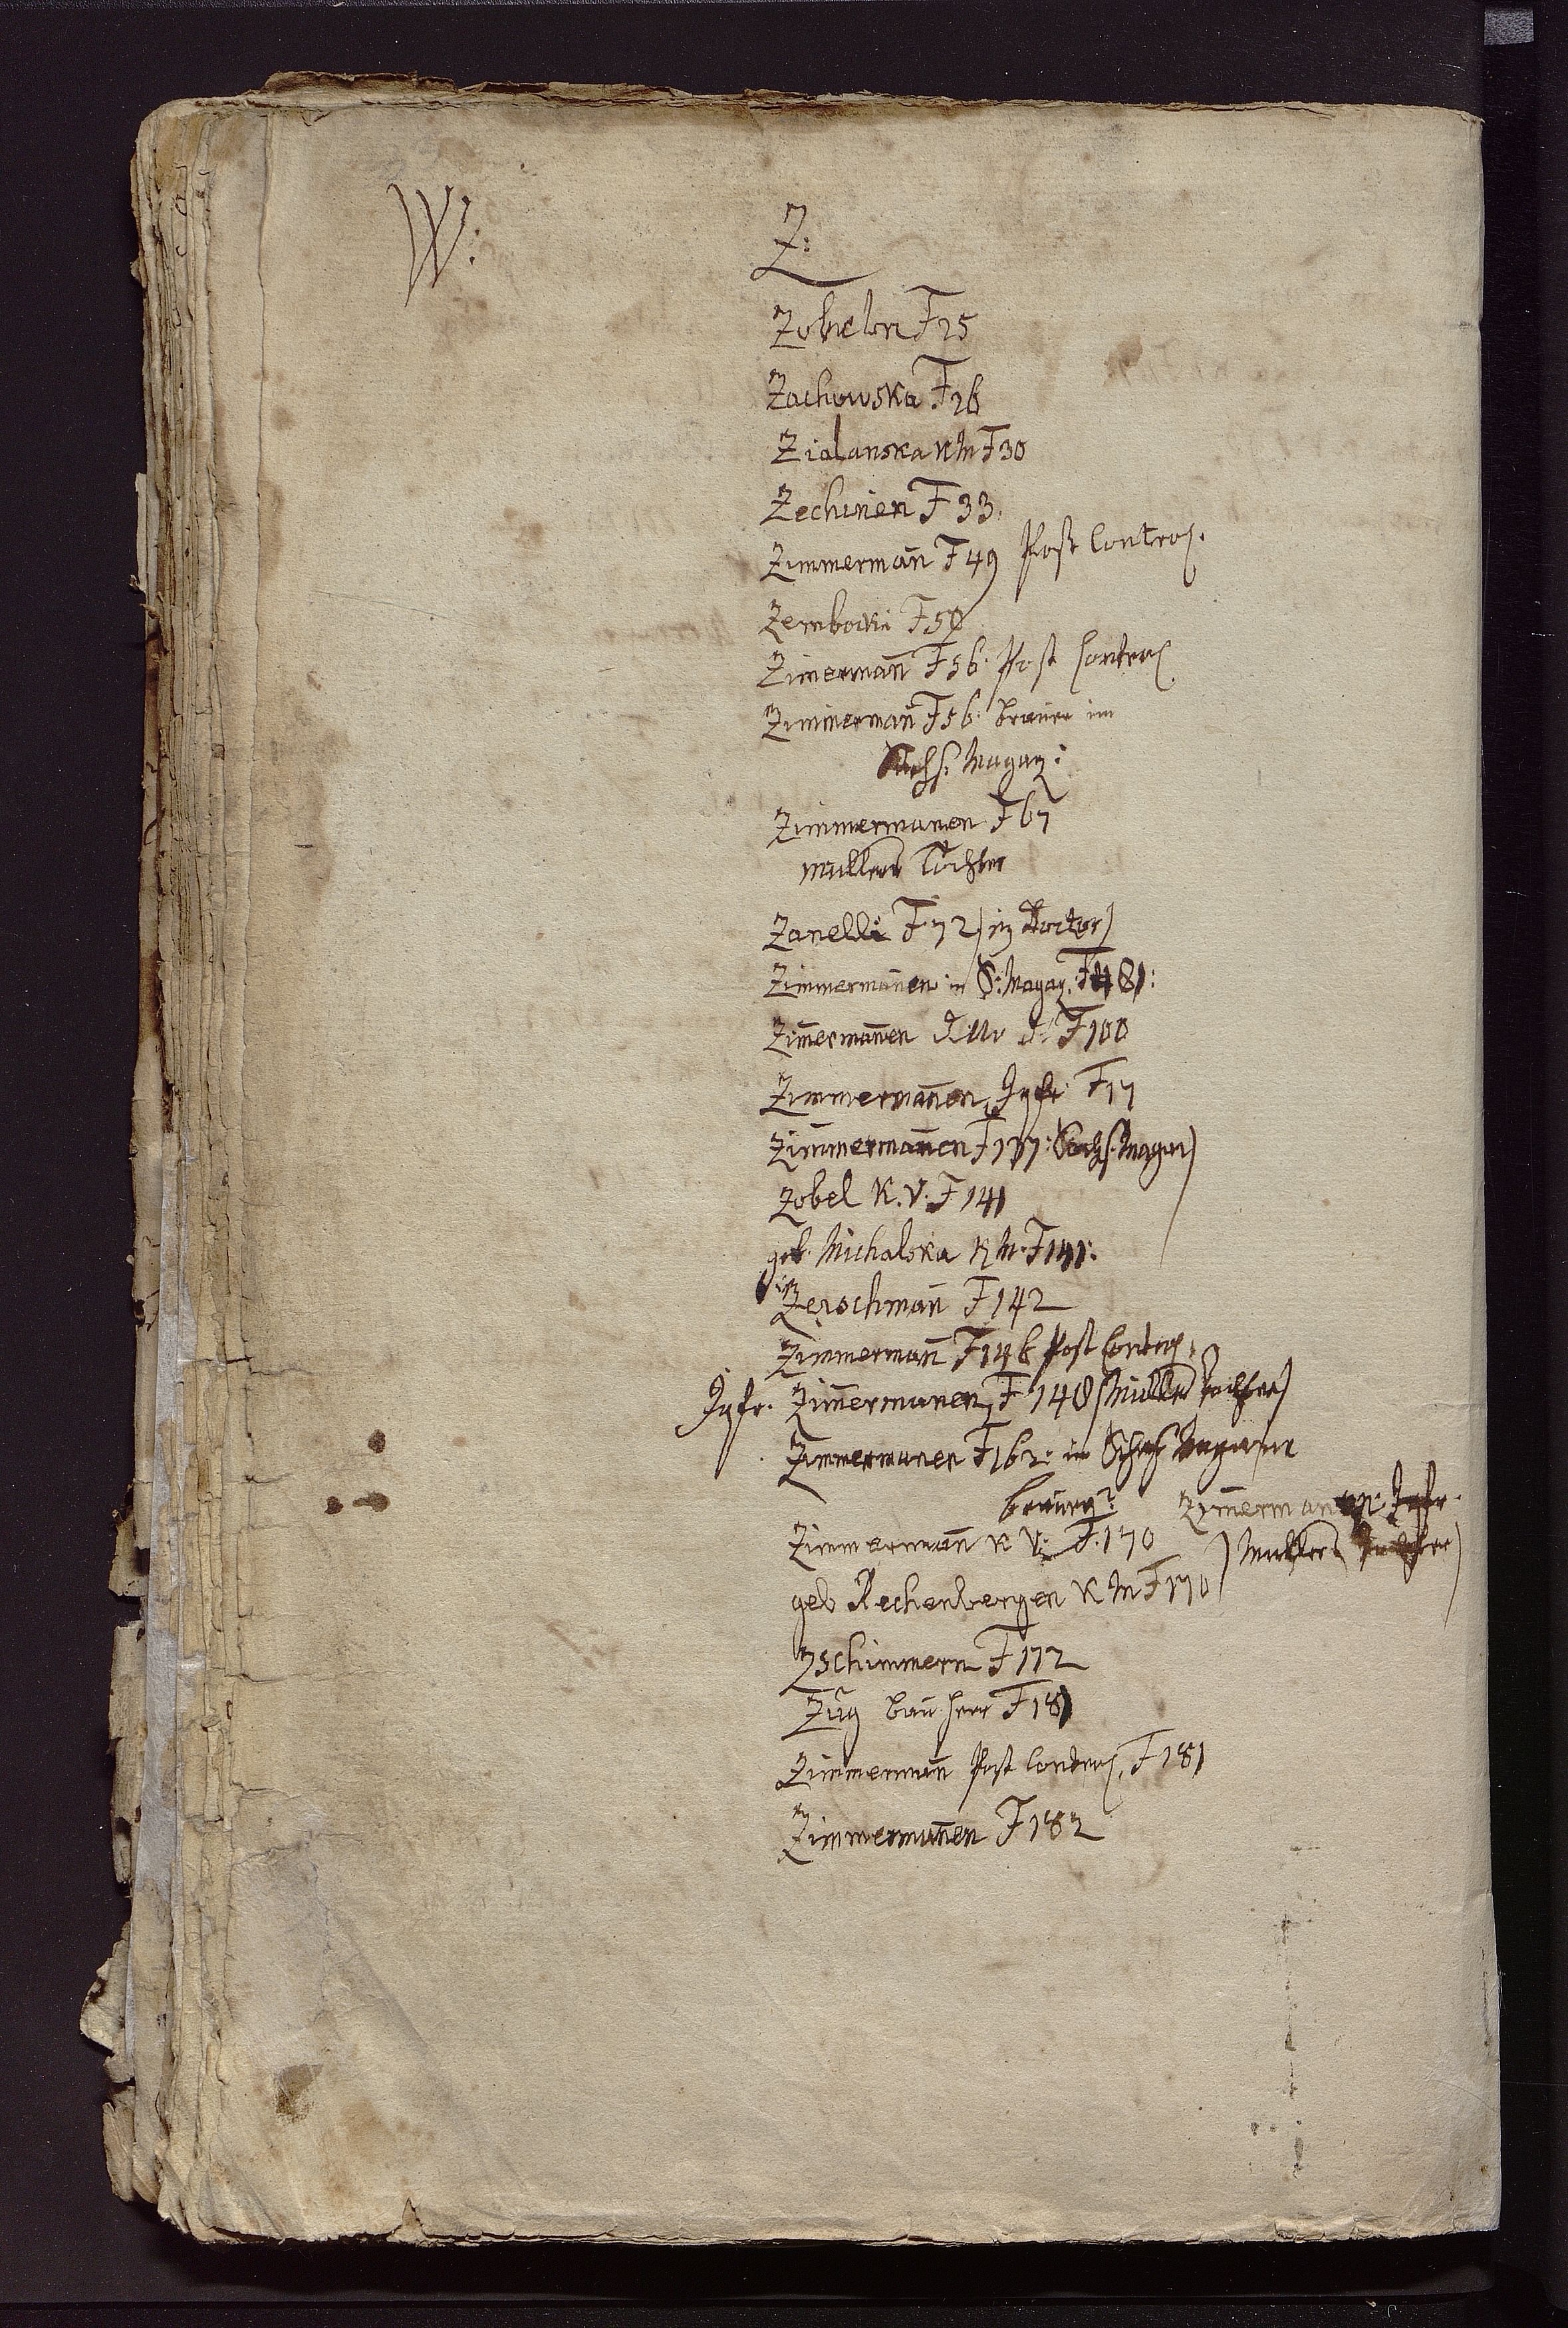 W:
Z:
Zobelon F 25
Zachowska F 26
Zialanska KM F 30
Zechinen F 33.
Zimmermañ F 49 Post Control.
Zembocki F 50
Zimermañ F 56. Post Control.
Zimmermañ F 56. Brauer im
Sachs. Magaz:
Zimmermanen F 67
Mullers Tochter
Zanelli F 72) in Doctor)
Zimmermanen in S: Magaz. F 81:
Zim̄ermañen F 100
Zimmermañen, Jgfr. F 17
Zim̄mermañen F 137: Sachs. Magaz)
Zobel K.V. F 141
geb. Michalska KM. F 141:
Zerschmañ F 142
Zimmermañ F 146 Post Control.
Jgfr. Zim̄ermanen F 148 (Müllers Tochter)
Zimmermanen F 162: in Sachs Magazin
brauer
Zim̄ermanen Jgfr.
Zimmermañ K V: F. 170
) Mullers Tochter)
geb Rechenbergen K M F 170
Zschimmern F 172
Zug Bau herr F 181
Zimmermañ Post Control. F 181
Zimmermañen F 182